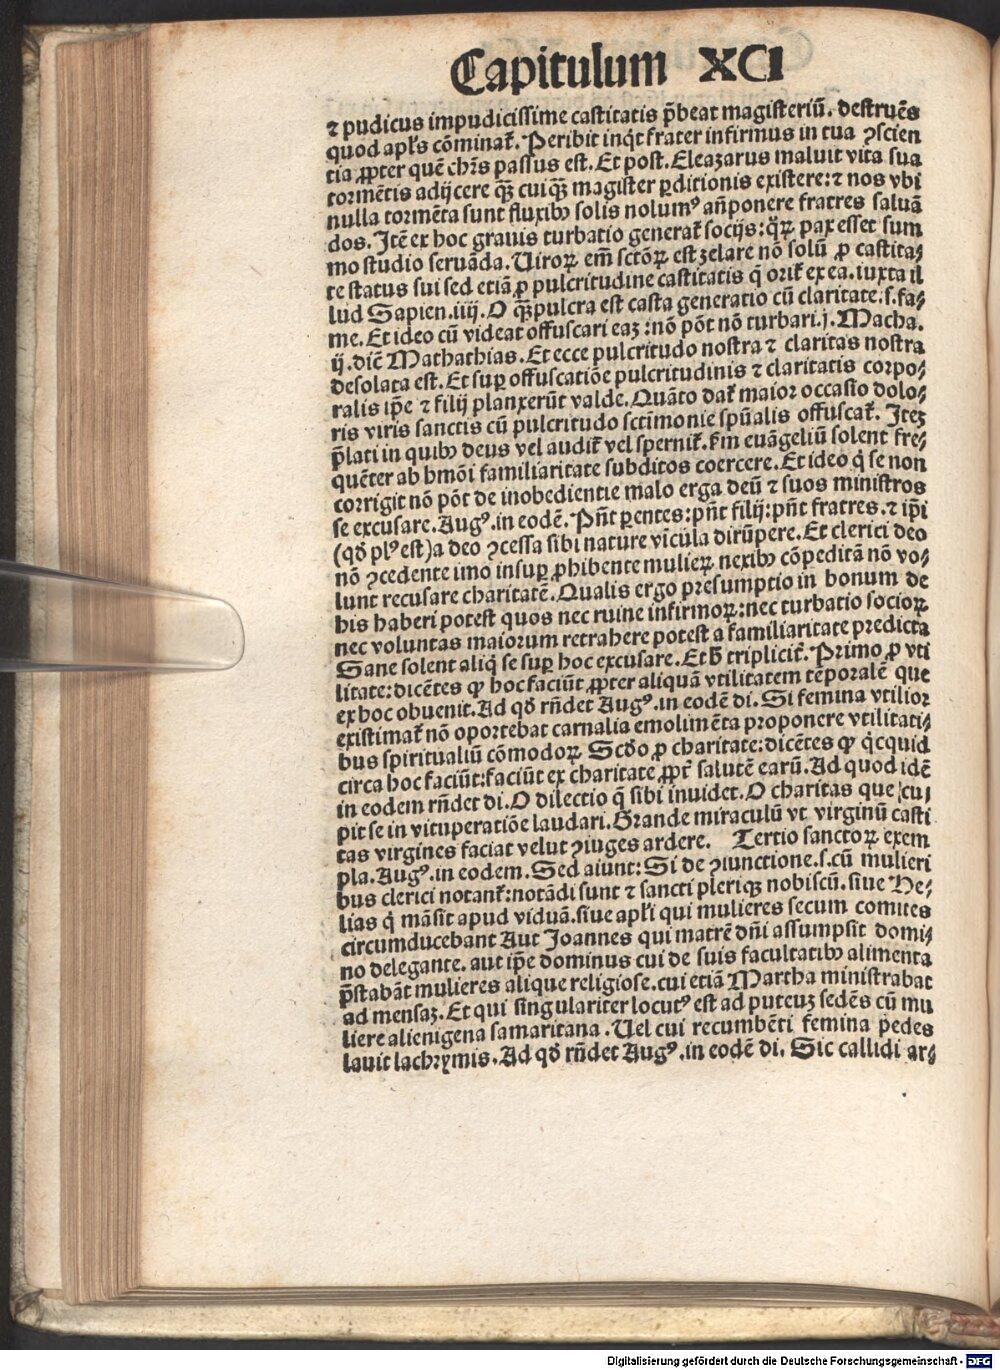 Capitulum XCI
⁊ pudicus impudicissime castitatis p̄beat magisteriū. destruēs
quod apl's cōminat̉. Peribit inq̇t frater infirmus in tua ꝯscien
tia ꝓpter quē chr̄s passus est. Et post. Eleazarus maluit vita sua
tormētis adijcere qꝫ̄ cuiqꝫ̄ magister ꝑditionis existere: ⁊ nos vbi
nulla tormēta sunt fluxibꝰ solis nolumꝰ an̄ponere fratres saluā
dos. Itē ex hoc grauis turbatio generat̉ socijs: qꝛ̄ pax esset sum
mo studio seruāda. Uiroꝝ em̄ sctōꝝ est zelare nō solū ꝓ castita⸗
te status sui sed etiā ꝓ pulcritudine castitatis q̄ orit̉ ex ea. iuxta il
lud Sapien. iiij. O qꝫ̄ pulcra est casta generatio cū claritate. s. fa⸗
me. Et ideo cū videāt offuscari eaꝫ: nō pōt nō turbari. j. Macha.
ij. dicē Mathathias. Et ecce pulcritudo nostra ⁊ claritas nostra
desolata est. Et suꝑ offuscatiōe pulcritudinis ⁊ claritatis corpo⸗
ralis ip̄e ⁊ filij planxerūt valde. Quāto dat̉ maior occasio dolo⸗
ris viris sanctis cū pulcritudo sctīmonie sp̄ualis offuscat̉. Iteꝫ
p̄lati in quibꝰ deus vel audit̉ vel spernit̉. km̄ euāgeliū solent fre⸗
quēter ab hmōi familiaritate subditos coercere. Et ideo q̇ se non
corrigit nō pōt de inobedientie malo erga deū ⁊ suos ministros
se excusare. Augꝰ. in eodē. Pn̄t ꝑentes: pn̄t filij: pn̄t fratres. ⁊ ip̄i
(qđ plꝰ est) a deo ꝯcessa sibi nature vīcula dirūpere. Et clerici deo
nō ꝯcedente imo insuꝑ ꝓhibente mulieꝝ nexibꝰ cōpeditā nō vo⸗
lunt recusare charitatē. Qualis ergo presumptio in bonum de
his haberi potest quos nec ruine infirmoꝝ: nec turbatio socioꝝ
nec voluntas maiorum retrahere potest a familiaritate predicta
Sane solent aliq̇ se suꝑ hoc excusare. Et ħ tripliciť. Primo ꝓ vti
litate: dicētes ꝙ hoc faciūt ꝓpter aliquā vtilitatem tēporalē que
ex hoc obuenit. Ad qđ rn̄det Augꝰ. in eodē di. Si femina vtilior
existimat̉ nō oportebat carnalia emolimēta proponere vtilitati⸗
bus spiritualiū cōmodoꝝ. Scđo ꝓ charitate: dicētes ꝙ q̇cquid
circa hoc faciūt: faciūt ex charitate ꝓpť salutē earū. Ad quod idē
in eodem rn̄det di. O dilectio q̄ sibi inuidet. O charitas que cu⸗
pit se in vituperatiōe laudari. Grande miraculū vt virginū casti
tas virgines faciat velut ꝯiuges ardere. Tertio sanctoꝝ exem
pla. Augꝰ. in eodem. Sed aiunt: Si de ꝯiunctione. s. cū mulieri
bus clerici notant̉: notādi sunt ⁊ sancti pleriqꝫ nobiscū. siue He⸗
lias q̇ māsit apud viduā. siue apl'i qui mulieres secum comites
circumducebant Aut Joannes qui matrē dn̄i assumpsit domi⸗
no delegante. aut ip̄e dominus cui de suis facultatibꝰ alimenta
p̄stabāt mulieres alique religiose. cui etiā Martha ministrabat
ad mensaꝫ. Et qui singulariter locutꝰ est ad puteuꝫ sedēs cū mu
liere alienigena samaritana. Uel cui recumbēti femina pedes
lauit lachrymis. Ad qđ rn̄det Augꝰ. in eodē di. Sic callidi ar⸗
Digitalisierung gefördert durch die Deutsche Forschungsgemeinschaft - DFG